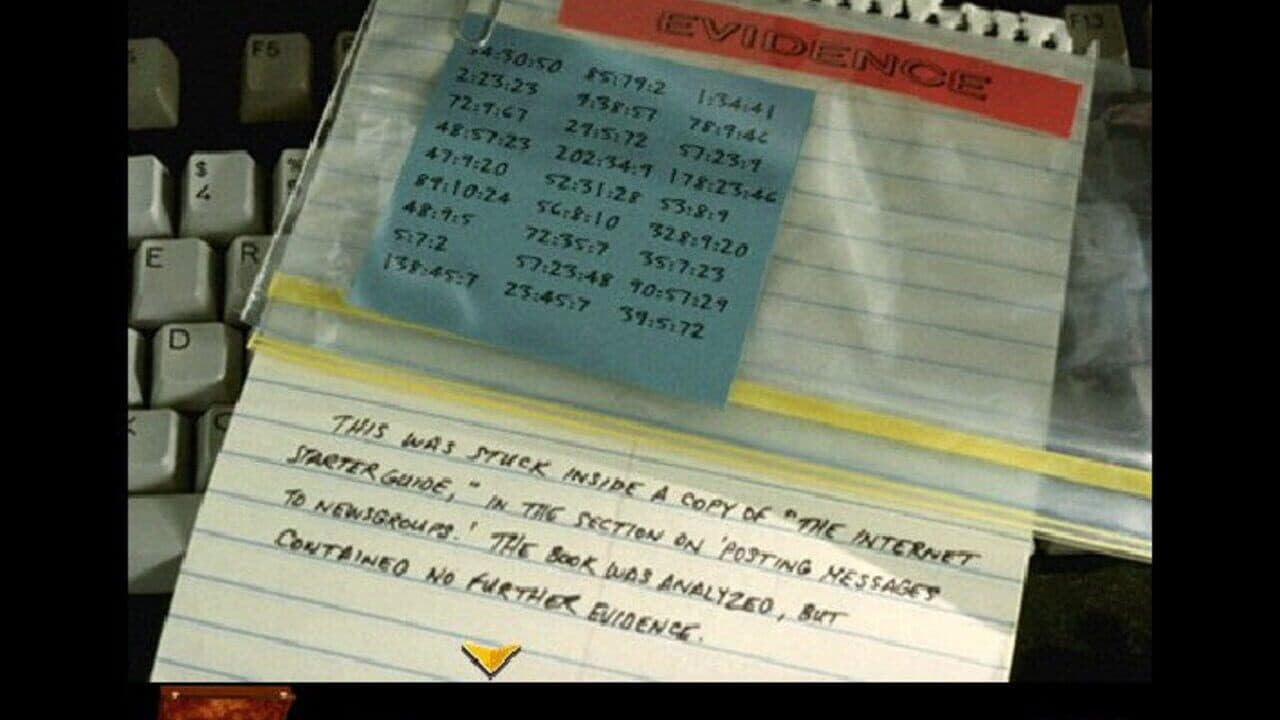 EVIDENCE
34:30:50 85:79:2 1:34:41
2:23:23 9:38:57 78:9:46
72:9:67 29:5:72 57:23:9
48:57:23 202:34:9 178:23:46
47:9:20 52:31:28 53:8:9
89:10:24 56:8:10 328:9:20
48:9:5 72:35:7 35:7:23
5:7:2 57:23:48 90:57:29
138:45:7 23:45:7 39:5:72
THIS WAS STUCK INSIDE A COPY OF "THE INTERNET
STARTER GUIDE," IN THE SECTION ON 'POSTING MESSAGES
TO NEWSGROUPS.' THE BOOK WAS ANALYZED, BUT
CONTAINED NO FURTHER EVIDENCE.
F5
F13
$
4
%
E
R
D